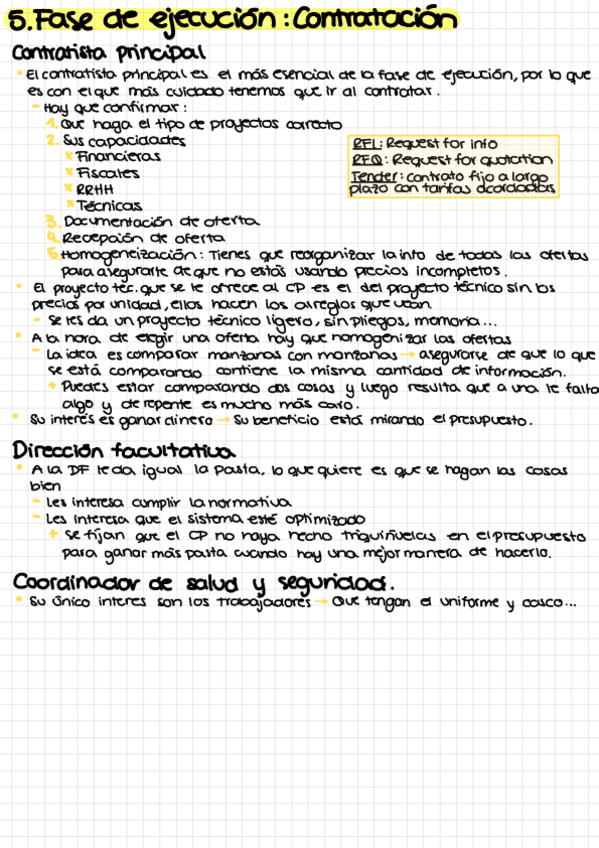 5. Fase de ejecución: Contratación
Contratista principal
• El contratista principal es el más esencial de la fase de ejecución, por lo que
es con el que más cuidado tenemos que ir al contratar.
- Hay que confirmar:
1. Que haga el tipo de proyectos correcto
2. Sus capacidades
x Financieras
x Fiscales
x RRHH
x Técnicas
3. Documentación de oferta
4. Recepción de oferta
5. Homogeneización: Tienes que reorganizar la info de todas las ofertas
para asegurarte de que no estás usando precios incompletos.
RFI: Request for info
RFQ: Request for quotation
Tender: contrato fijo a largo
plazo con tarifas acordadas
• El proyecto téc. que se le ofrece al CP es el del proyecto técnico sin los
precios por unidad, ellos hacen los arreglos que vean.
- Se les da un proyecto técnico ligero, sin pliegos, memoria...
• A la hora de elegir una oferta hay que homogenizar las ofertas
- La idea es comparar manzanas con manzanas → asegurarse de que lo que
se está comparando contiene la misma cantidad de información.
+ Puedes estar comparando dos cosas y luego resulta que a una le falta
algo y de repente es mucho más caro.
• Su interés es ganar dinero → Su beneficio está mirando el presupuesto.
Dirección facultativa
• A la DF le da igual la pasta, lo que quiere es que se hagan las cosas
bien
- Les interesa cumplir la normativa
- Les interesa que el sistema esté optimizado
+ Se fijan que el CP no haya hecho triquiñuelas en el presupuesto
para ganar más pasta cuando hay una mejor manera de hacerlo.
Coordinador de salud y seguridad.
• Su único interes son los trabajadores → Que tengan el uniforme y casco...